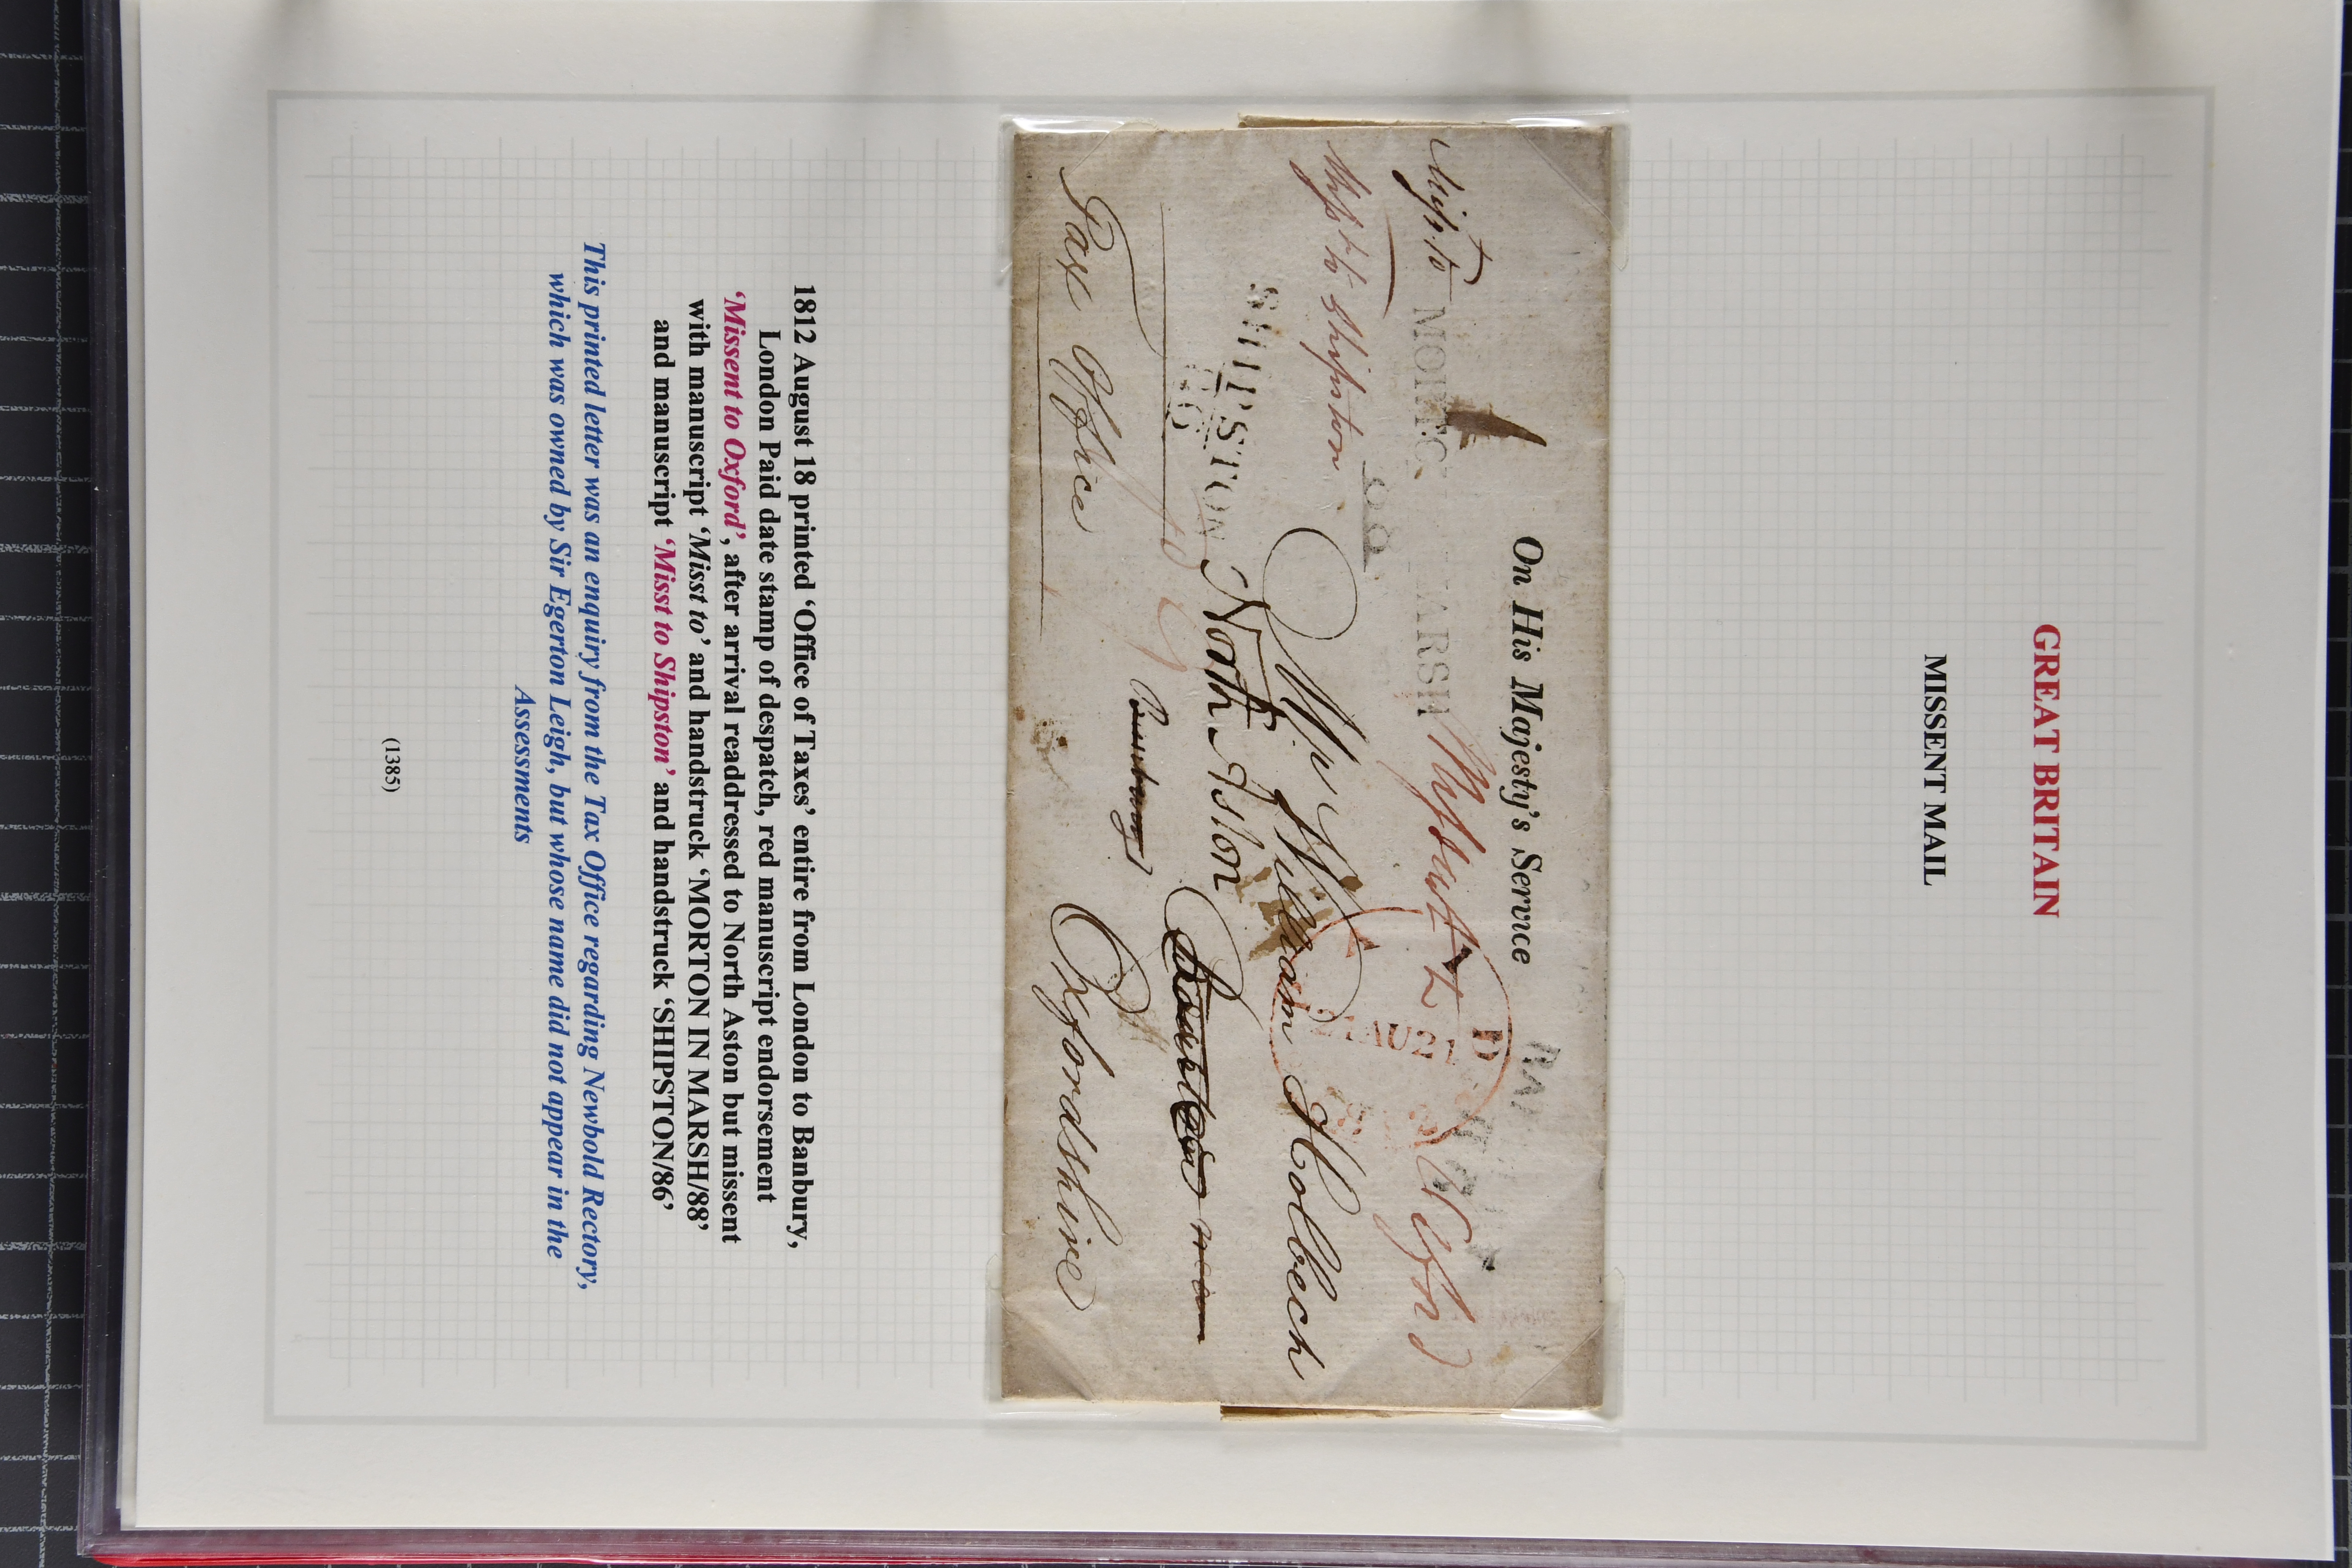 GREAT BRITAIN
MISSENT MAIL
On His Majesty's Service
Misst to
MORTO
MARSH
88
Missent to Oxford
Misst to Shipston
D
21AU21
Mr William Holbech
SHIPSTON
86
North Aston
Banbury
Tax Office
Oxfordshire
1812 August 18 printed ‘Office of Taxes’ entire from London to Banbury,
London Paid date stamp of despatch, red manuscript endorsement
‘Missent to Oxford’, after arrival readdressed to North Aston but missent
with manuscript ‘Misst to’ and handstruck ‘MORTON IN MARSH/88’
and manuscript ‘Misst to Shipston’ and handstruck ‘SHIPSTON/86’
This printed letter was an enquiry from the Tax Office regarding Newbold Rectory,
which was owned by Sir Egerton Leigh, but whose name did not appear in the
Assessments
(1385)